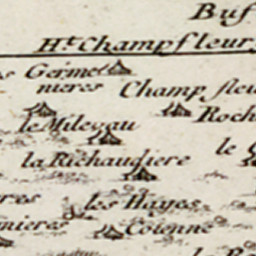 Buf
H.t Champfleur
Germe
nieres
Champ fleu
Roch
le Milegau
le
la Richaudiere
res
les Hayes
nieres
Coionne